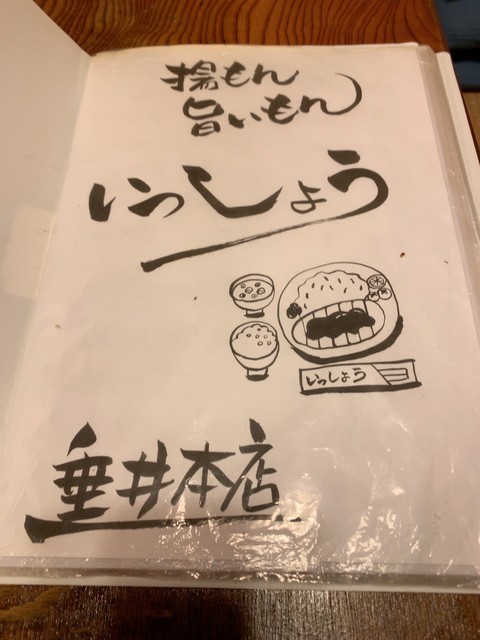 揚もん
旨いもん
いっしょう
いっしょう
垂井本店